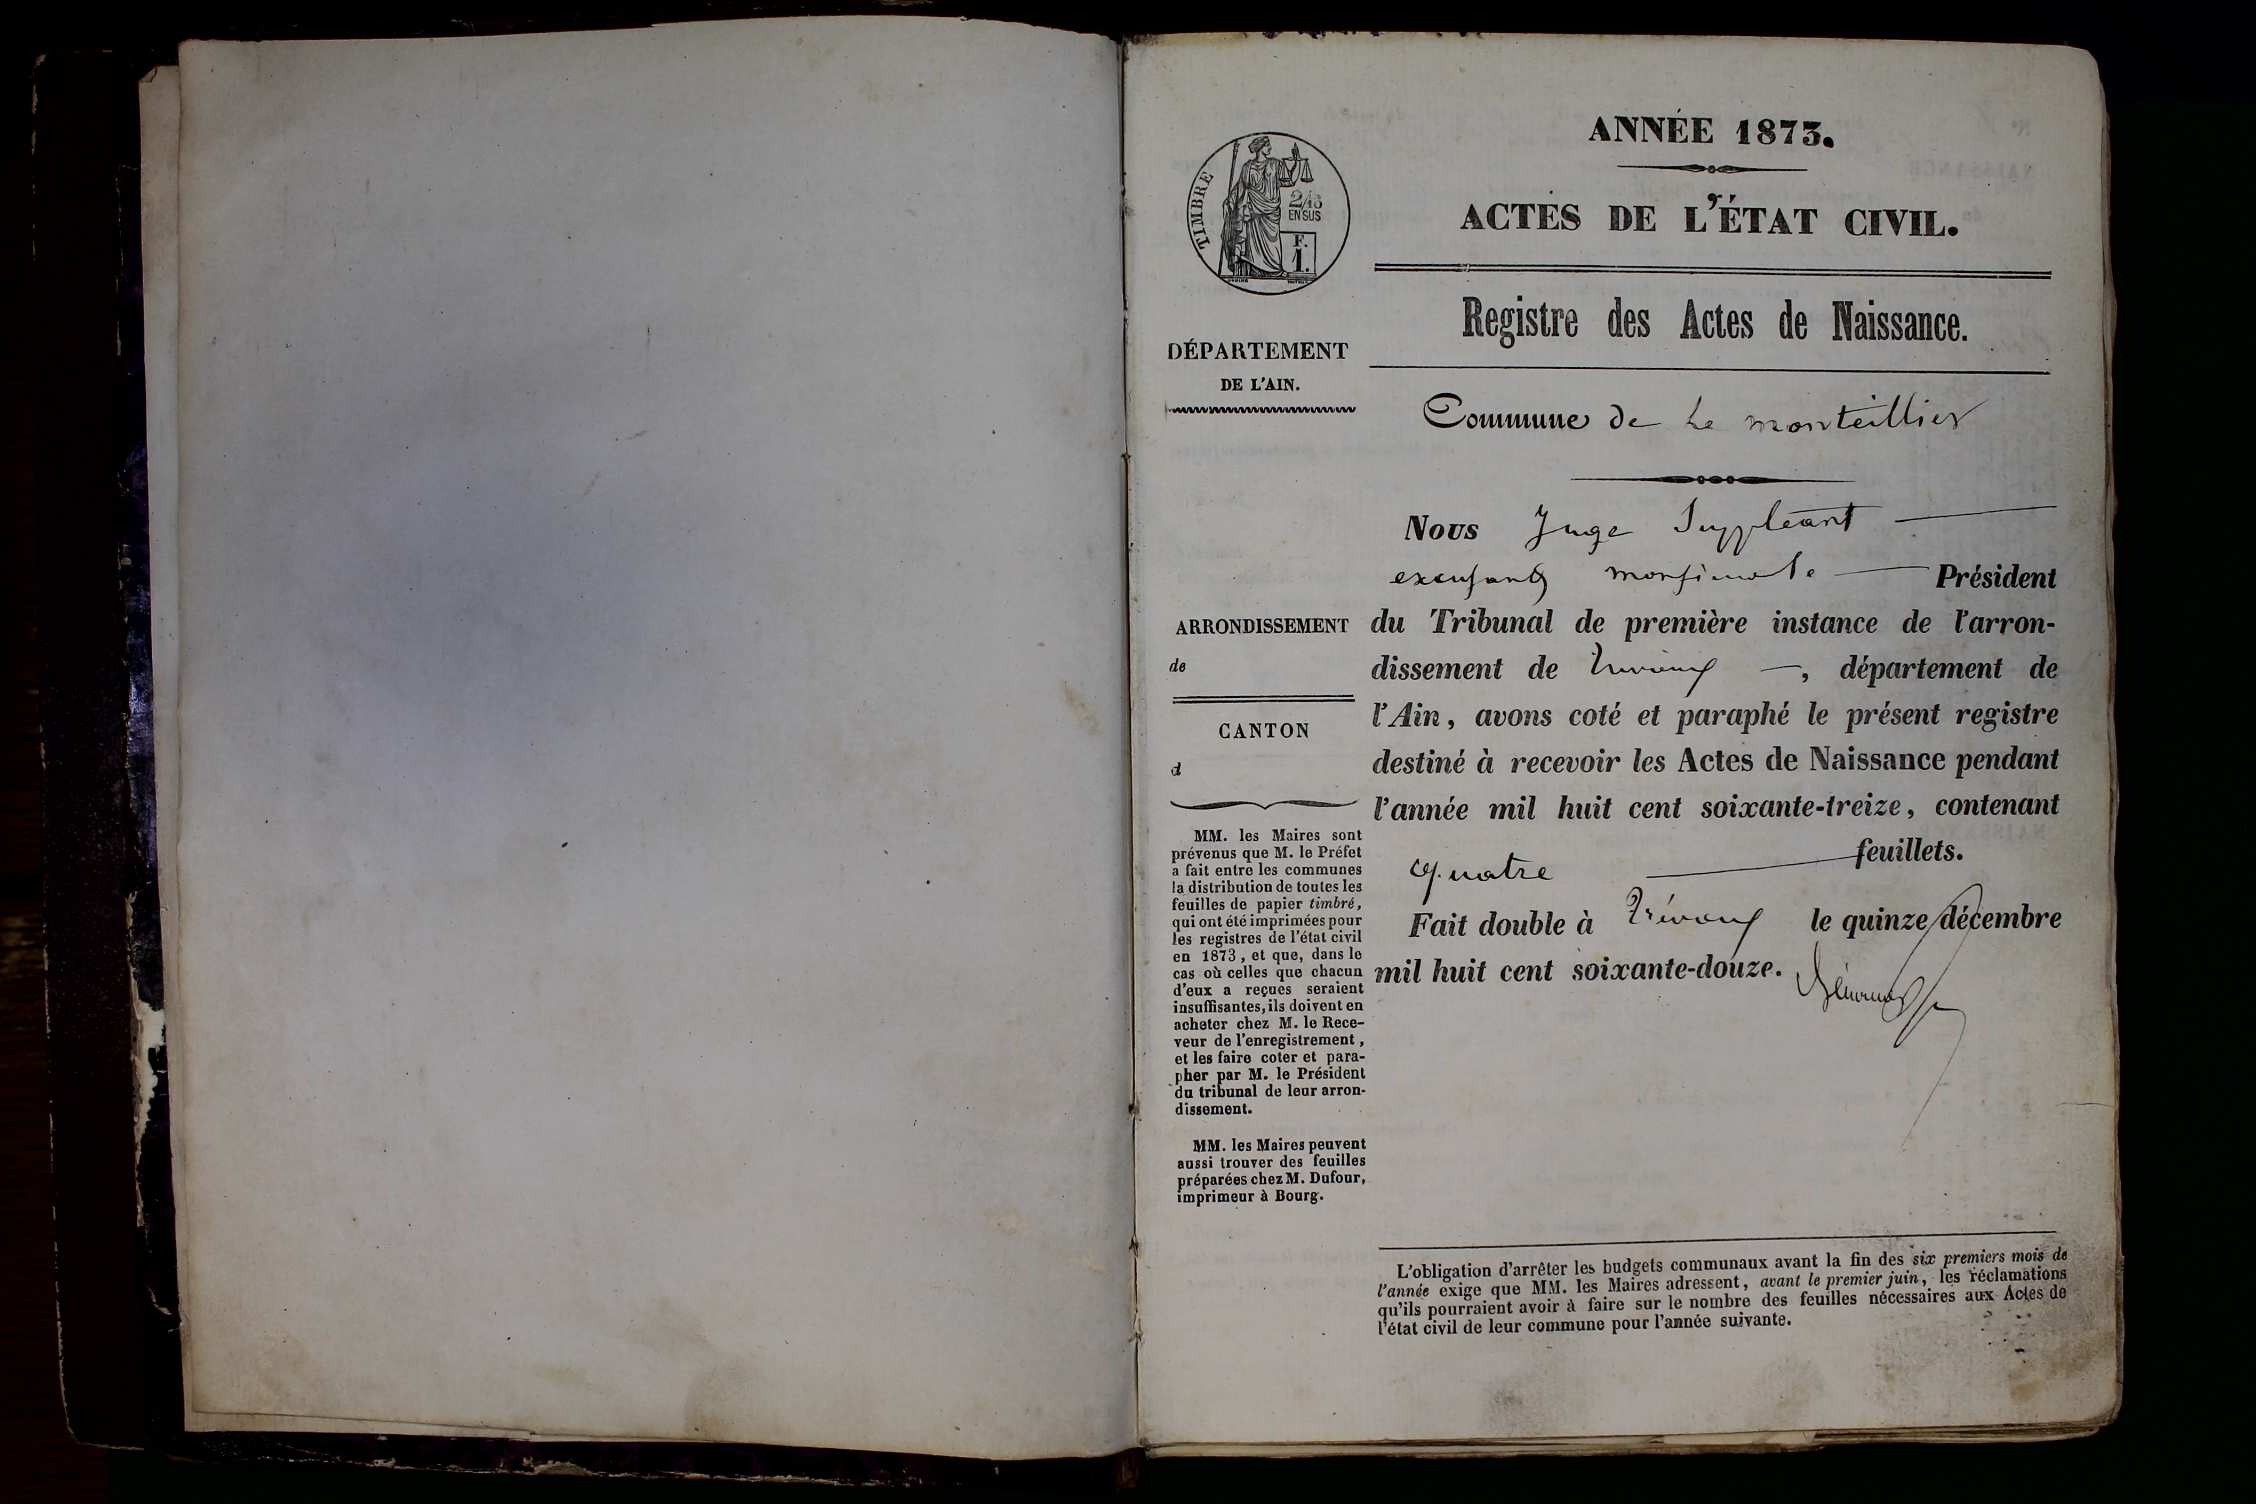 ANNÉE 1873.
ACTES DE L'ÉTAT CIVIL.
Registre des Actes de Naissance.
TIMBRE
2/10
EN SUS
F.
1.
DÉPARTEMENT
DE L'AIN.
ARRONDISSEMENT
de
CANTON
d
MM. les Maires sont
prévenus que M. le Préfet
a fait entre les communes
la distribution de toutes les
feuilles de papier timbré,
qui ont été imprimées pour
les registres de l'état civil
en 1873, et que, dans le
cas où celles que chacun
d'eux a reçues seraient
insuffisantes, ils doivent en
acheter chez M. le Rece-
veur de l'enregistrement,
et les faire coter et para-
pher par M. le Président
du tribunal de leur arron-
dissement.
MM. les Maires peuvent
aussi trouver des feuilles
préparées chez M. Dufour,
imprimeur à Bourg.
Commune de Le monteillier
Nous Juge Suppléant
Président
du Tribunal de première instance de l'arron-
dissement de Trévoux, département de
l'Ain, avons coté et paraphé le présent registre
destiné à recevoir les Actes de Naissance pendant
l'année mil huit cent soixante-treize, contenant
quatre feuillets.
Fait double à Trévoux le quinze décembre
mil huit cent soixante-douze.
L'obligation d'arrêter les budgets communaux avant la fin des six premiers mois de
l'année exige que MM. les Maires adressent, avant le premier juin, les réclamations
qu'ils pourraient avoir à faire sur le nombre des feuilles nécessaires aux Actes de
l'état civil de leur commune pour l'année suivante.